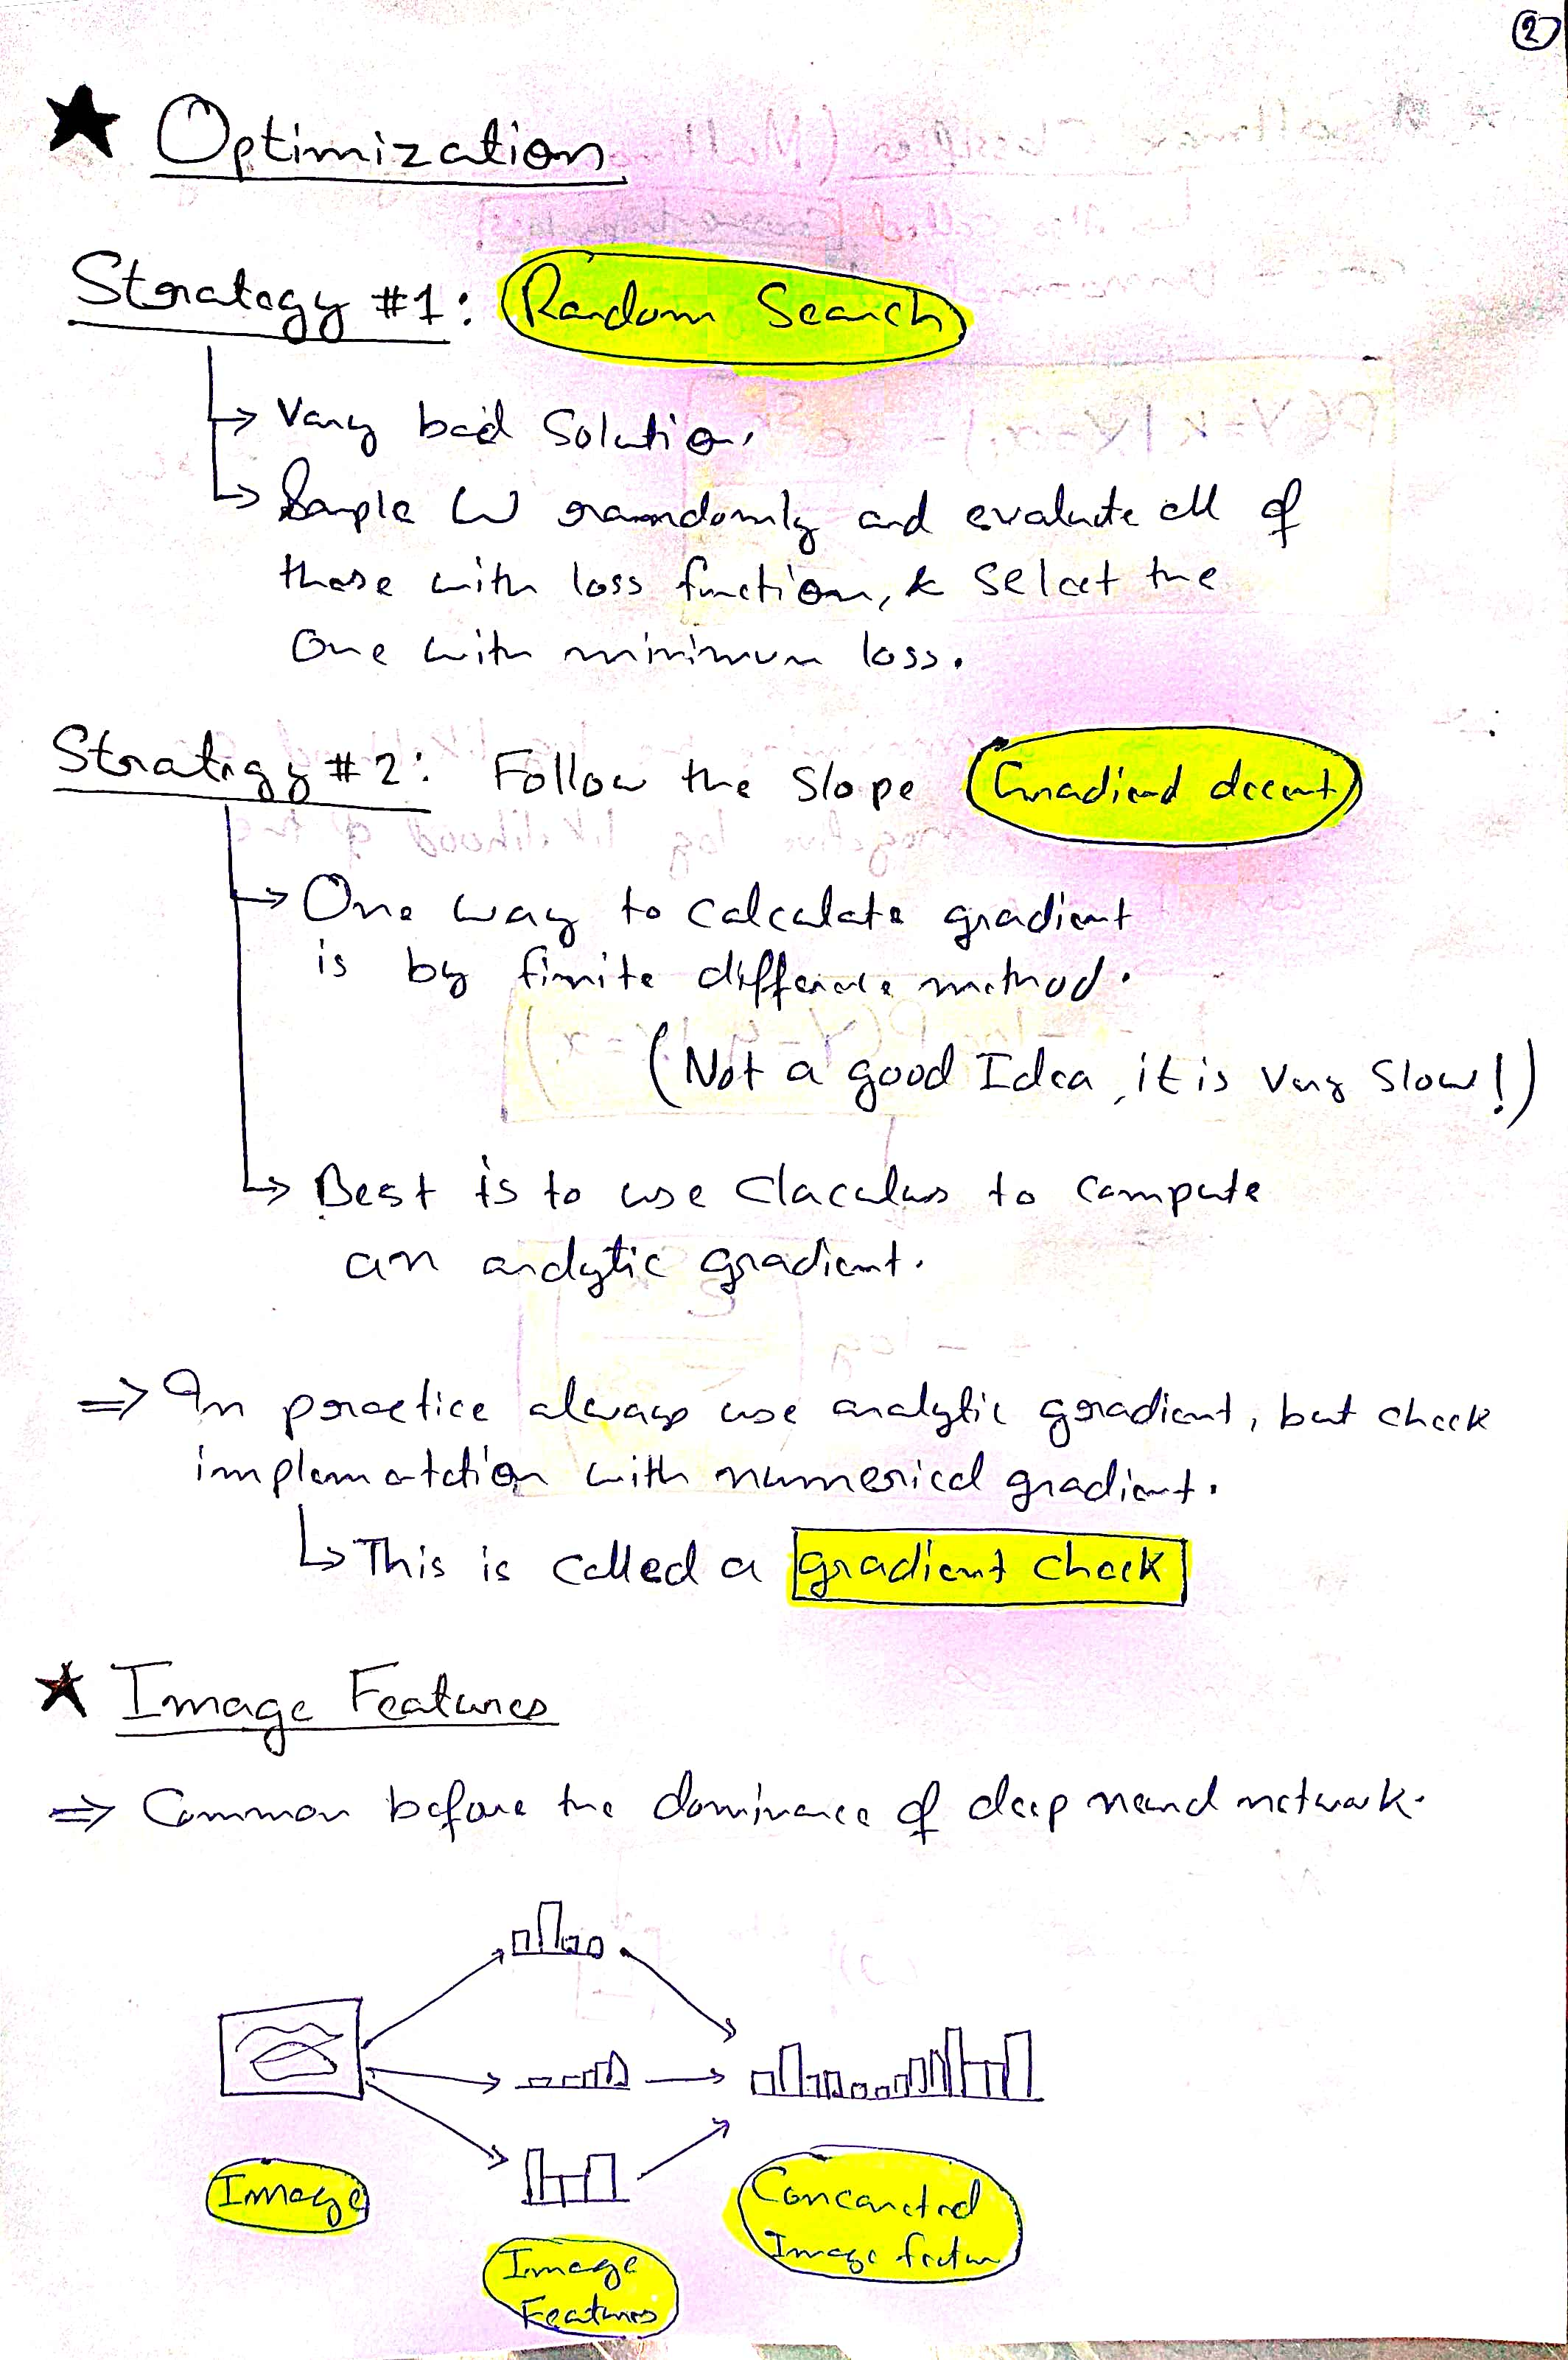 2
★ Optimization
Strategy #1: Random Search
↳ Very bad Solution.
↳ Sample W raandomly and evaluate all of
those with loss function, & Select the
One with minimum loss.
Stratigy #2: Follow the Slope (Gradiend decent)
↳ One way to calculate gradient
is by finite difference method.
(Not a good Idea, it is very slow!)
↳ Best is to use Claculus to compute
an analytic gradient.
⇒ In practice always use analytic gradient, but check
implematation with numerical gradient.
↳ This is called a gradient check
★ Image Features
⇒ Common before the dominance of deep neural network.
Image
Image
Features
Concancted
Image featur